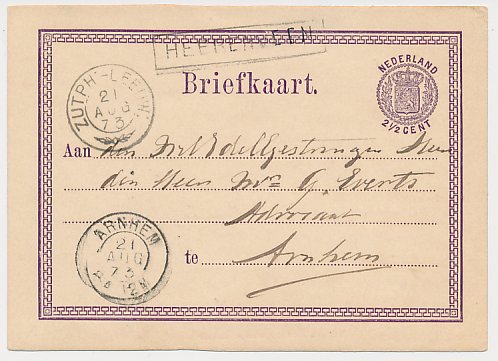 HEERENVEEN
NEDERLAND
2½ CENT
ZUTPH-LEEUW:
21
AUG
73
Briefkaart.
Aan den WelEdelGestrengen Heer
den Heer Mr. G. Everts
Advocaat
te Arnhem
ARNHEM
21
AUG
73